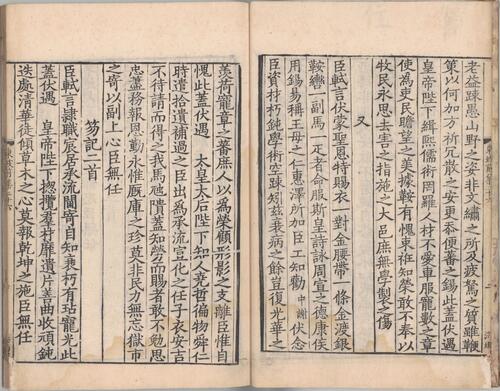 老益踈愚山野之姿非文繡之所及疲駑之質雖鞭
策以何加方祈冗散之安更忝便蕃之錫此蓋伏遇
皇帝陛下緝熙儒術罔羅人材不愛車服寵數之章
使為吏民瞻望之美據鞍有愧束袵知榮敢不奉以
牧民永思去害之指施之大邑庶無學製之傷
又
臣軾言伏蒙聖恩特賜衣一對金腰帶一條金渡銀
鞍轡一副馬一疋者命服斯皇詩詠周宣之德康侯
用錫易稱王母之仁惠澤所加臣工知勸中謝伏念
臣資材朽鈍學術空踈矧玆衰病之餘豈復光華之
羨荷寵章之蕃庶人以為榮顧形影之支離臣惟自
愧此蓋伏遇 太皇太后陛下知人堯哲徧物舜仁
時遣拾遺補過之臣出為承流宣化之任子衣安吉
不待請而得之我馬虺隤蓋知勞而賜者敢不勉思
忠藎務報恩勤永惟廐庫之珍莫非民力無忝獄市
之寄以副上心臣無任
笏記二首
臣軾言隸職宸居承流閫寄自知衰朽有玷寵光此
蓋伏遇 皇帝陛下揔攬羣材靡遺片善曲收頑鈍
迭處清華徒傾草木之心莫報乾坤之施臣無任